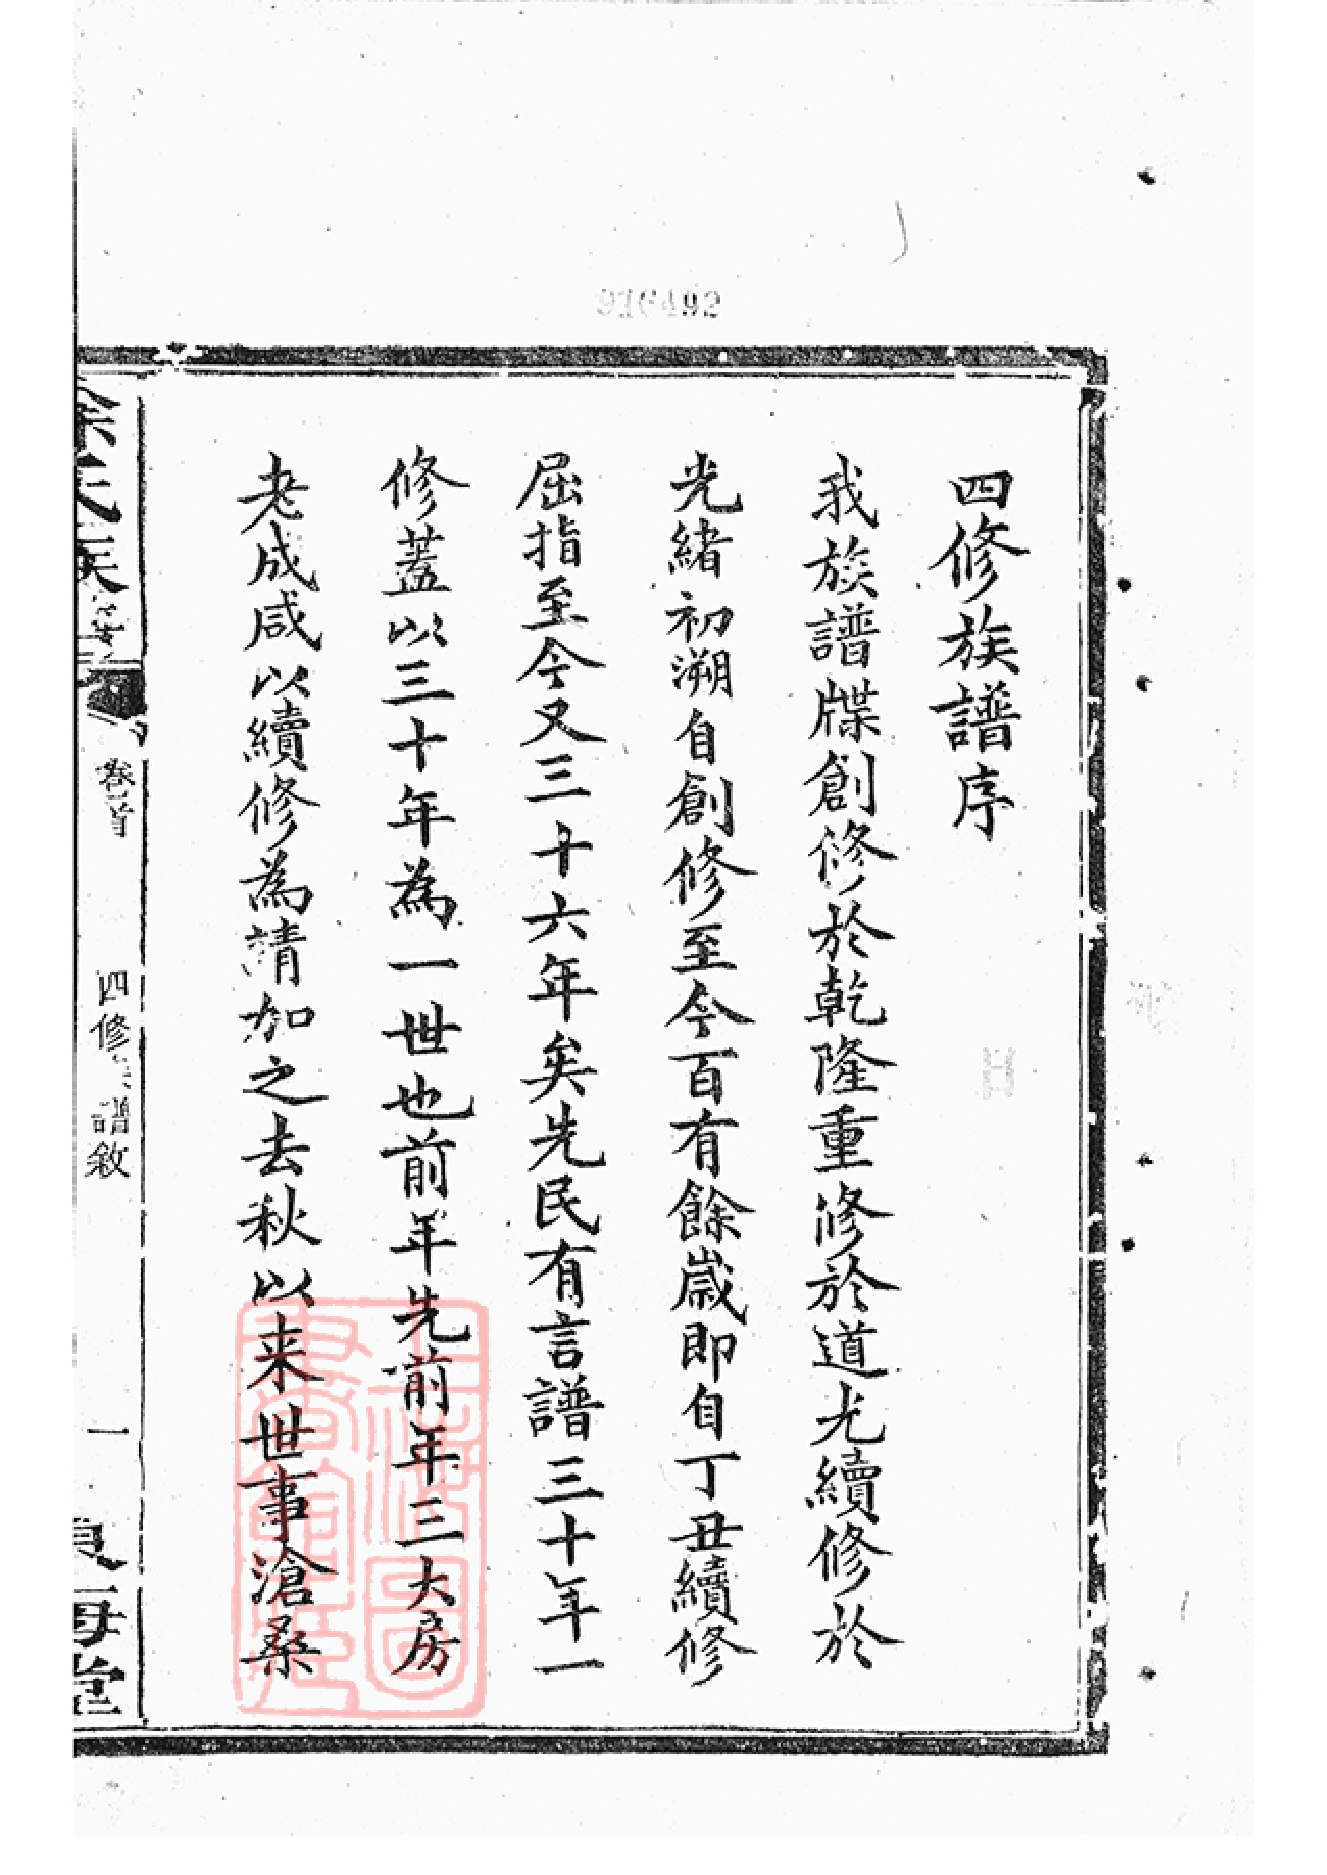 916492
四修族譜序
我族譜牒創修於乾隆重修於道光續修於
光緒初溯自創修至今百有餘歲即自丁丑續修
屈指至今又三十六年矣先民有言譜三十年一
修蓋以三十年為一世也前年先前年三大房
老成咸以續修為請加之去秋以来世事滄桑
氏族
卷首
四修 譜敘
一
堂